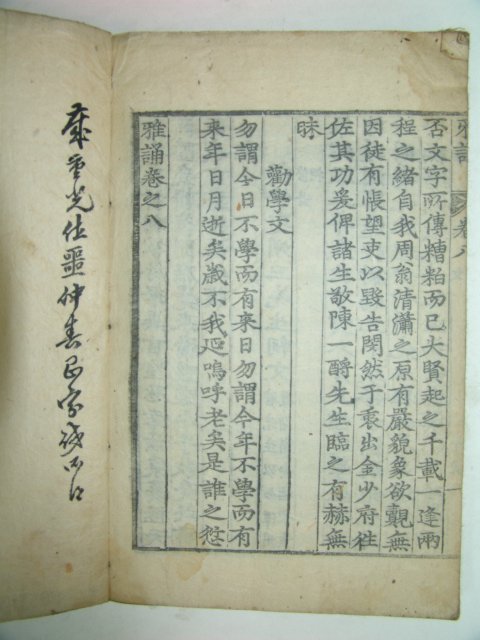 雅誦 卷八
否文字所傳糟粕而已大賢起之千載一逢兩
程之緖自我周翁清瀟之原有嚴貌象欲觀無
因徒有悵望吏以毀告閔然于衷出金少府徃
佐其功爰俾諸生敬陳一酹先生臨之有赫無
昧
勸學文
勿謂今日不學而有來日勿謂今年不學而有
来年日月逝矣歲不我延嗚呼老矣是誰之愆
雅誦卷之八